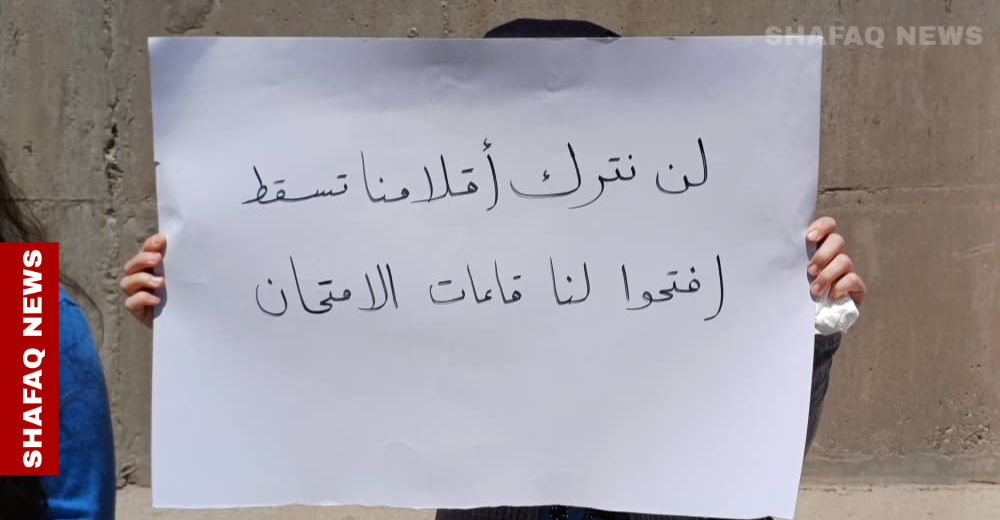 SHAFAQ NEWS
لن نترك أقلامنا تسقط
افتحوا لنا قاعات الامتحان
SHAFAQ NEWS